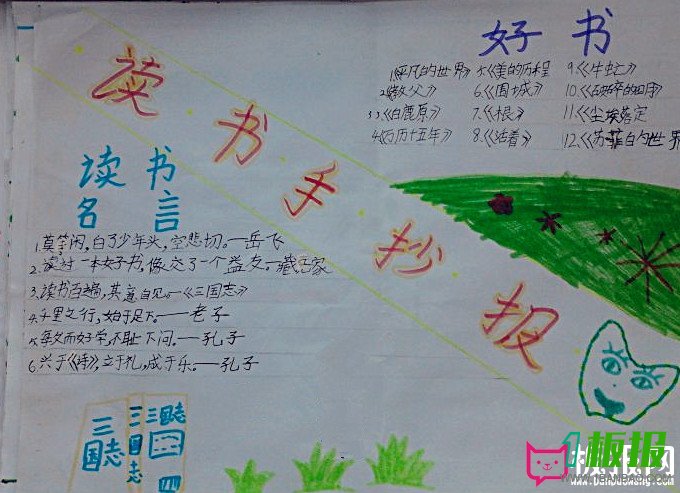 好书
1.《平凡的世界》 5.《美的历程 9.《牛虻》
2.《教父》 6.《围城》 10.《破碎的四月》
3.《白鹿原》 7.《根》 11.《尘埃落定
4.《万历十五年》 8.《活着》 12.《苏菲的世界
读书手抄报
读书
名言
1.莫等闲,白了少年头,空悲切。—岳飞
2.读过一本好书,像交了一个益友。—臧克家
3.读书百遍,其义自见。—《三国志》
4.千里之行,始于足下。—老子
5.敏而好学,不耻下问。—孔子
6.兴于《诗》,立于礼,成于乐。—孔子
三国志
三国志
三国志
四
1板报